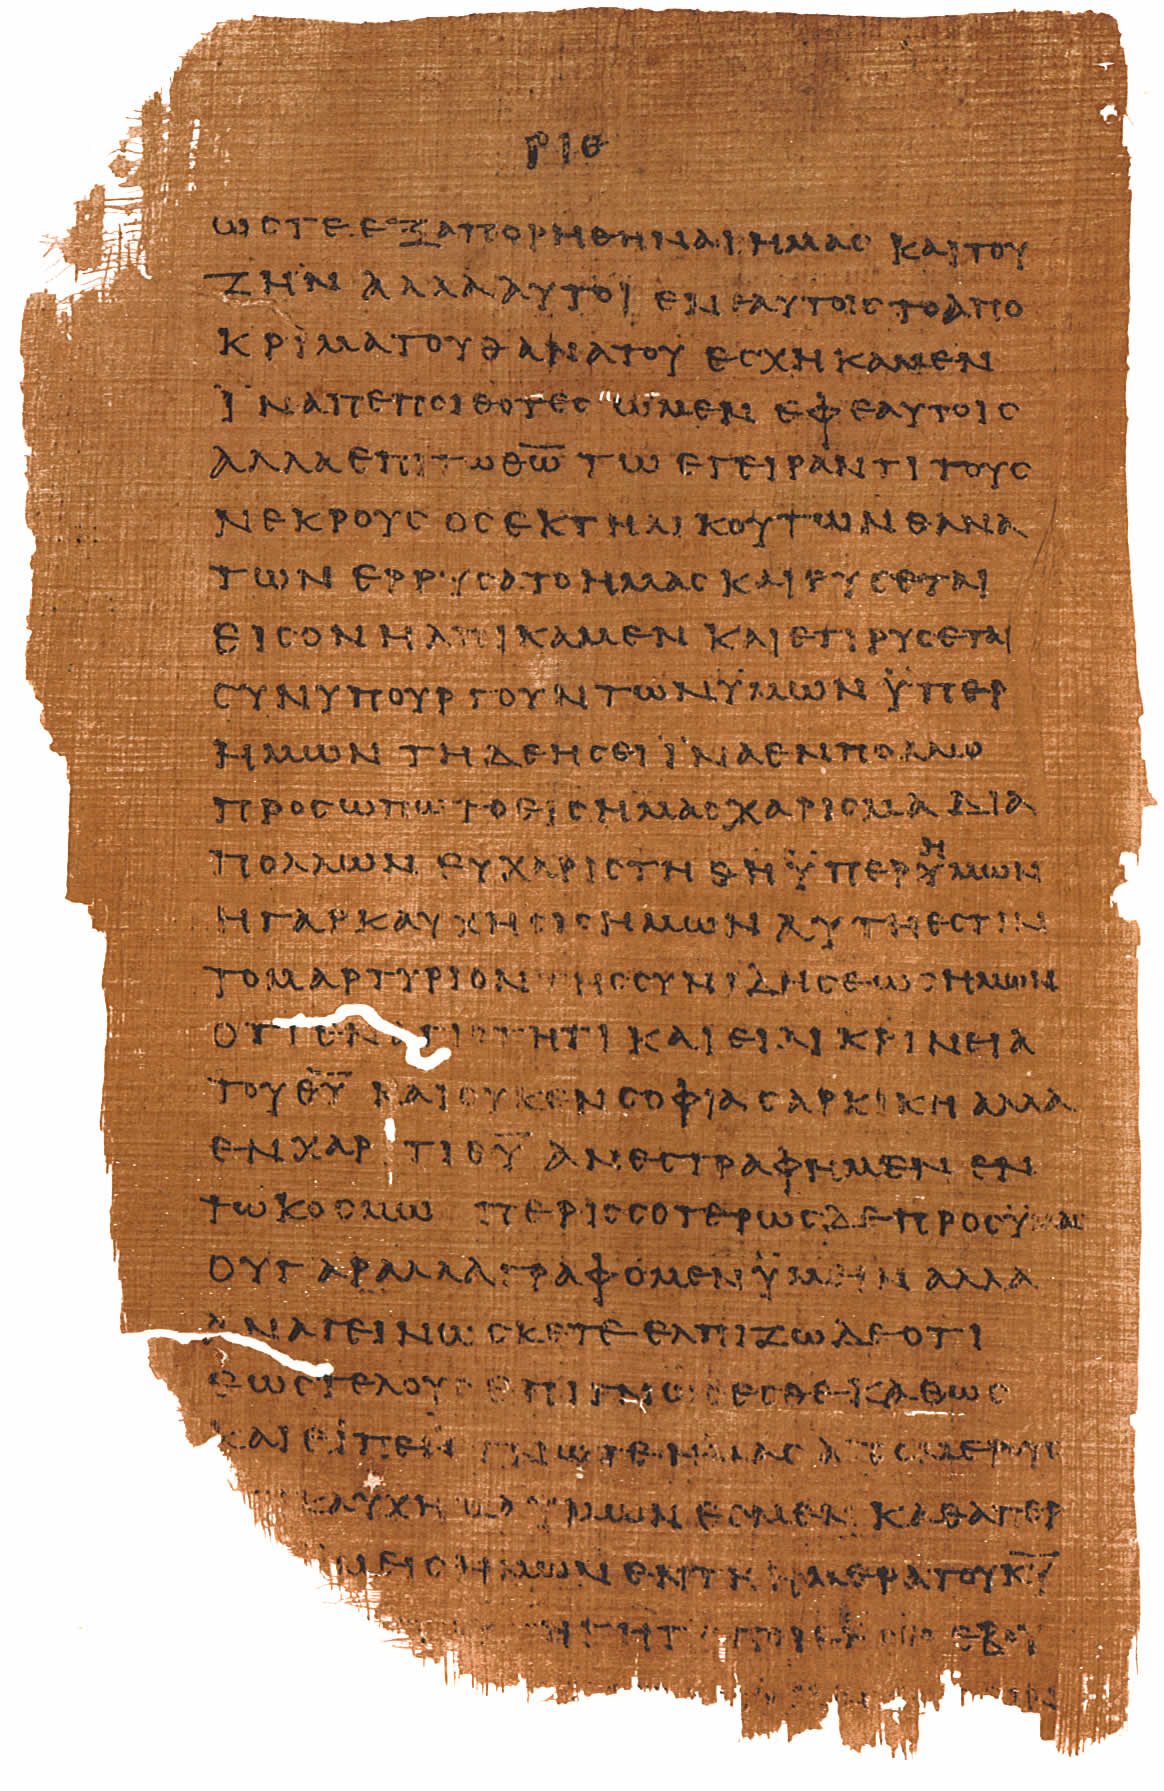 ΡΙΘ
ΩΣΤΕ ΕΞΑΠΟΡΗΘΗΝΑΙ ΗΜΑΣ ΚΑΙ ΤΟΥ
ΖΗΝ ΑΛΛΑ ΑΥΤΟΙ ΕΝ ΕΑΥΤΟΙΣ ΤΟ ΑΠΟ
ΚΡΙΜΑ ΤΟΥ ΘΑΝΑΤΟΥ ΕΣΧΗΚΑΜΕΝ
ΪΝΑ ΠΕΠΟΙΘΟΤΕΣ ΩΜΕΝ ΕΦ ΕΑΥΤΟΙΣ
ΑΛΛΑ ΕΠΙ ΤΩ Θ̅Ω̅ ΤΩ ΕΓΕΙΡΑΝΤΙ ΤΟΥΣ
ΝΕΚΡΟΥΣ ΟΣ ΕΚ ΤΗΛΙΚΟΥΤΩΝ ΘΑΝΑ
ΤΩΝ ΕΡΡΥΣΑΤΟ ΗΜΑΣ ΚΑΙ ΡΥΣΕΤΑΙ
ΕΙΣ ΟΝ ΗΛΠΙΚΑΜΕΝ ΚΑΙ ΕΤΙ ΡΥΣΕΤΑΙ
ΣΥΝΥΠΟΥΡΓΟΥΝΤΩΝ ΫΜΩΝ ΫΠΕΡ
ΗΜΩΝ ΤΗ ΔΕΗΣΕΙ ΪΝΑ ΕΝ ΠΟΛΛΩ
ΠΡΟΣΩΠΩ ΤΟ ΕΙΣ ΗΜΑΣ ΧΑΡΙΣΜΑ ΔΙΑ
ΠΟΛΛΩΝ ΕΥΧΑΡΙΣΤΗΘΗ ΫΠΕΡ ΥΜΩΝ
Η ΓΑΡ ΚΑΥΧΗΣΙΣ ΗΜΩΝ ΑΥΤΗ ΕΣΤΙΝ
ΤΟ ΜΑΡΤΥΡΙΟΝ ΤΗΣ ΣΥΝΙΔΗΣΕΩΣ ΗΜΩΝ
ΟΤΙ ΕΝ ΑΓΙΟΤΗΤΙ ΚΑΙ ΕΙΛΙΚΡΙΝΕΙΑ
ΤΟΥ Θ̅Υ̅ ΚΑΙ ΟΥΚ ΕΝ ΣΟΦΙΑ ΣΑΡΚΙΚΗ ΑΛΛΑ
ΕΝ ΧΑΡΙΤΙ Θ̅Υ̅ ΑΝΕΣΤΡΑΦΗΜΕΝ ΕΝ
ΤΩ ΚΟΣΜΩ ΠΕΡΙΣΣΟΤΕΡΩΣ ΔΕ ΠΡΟΣ ΫΜΑΣ
ΟΥ ΓΑΡ ΑΛΛΑ ΓΡΑΦΟΜΕΝ ΫΜΕΙΝ ΑΛΛΑ
ΑΝΑΓΕΙΝΩΣΚΕΤΕ ΕΛΠΙΖΩ ΔΕ ΟΤΙ
ΕΩΣ ΤΕΛΟΥΣ ΕΠΙΓΝΩΣΕΣΘΕ ΚΑΘΩΣ
ΚΑΙ ΕΠΕΓ ΓΝΩΤΕ ΗΜΑΣ ΑΠΟ ΜΕΡΟΥΣ
ΚΑΥΧΗΜΑ ΥΜΩΝ ΕΣΜΕΝ ΚΑΘΑΠΕΡ
ΥΜΕΙΣ ΗΜΩΝ ΕΝ ΤΗ ΗΜΕΡΑ ΤΟΥ Κ̅Υ̅
ΕΒΟΥ